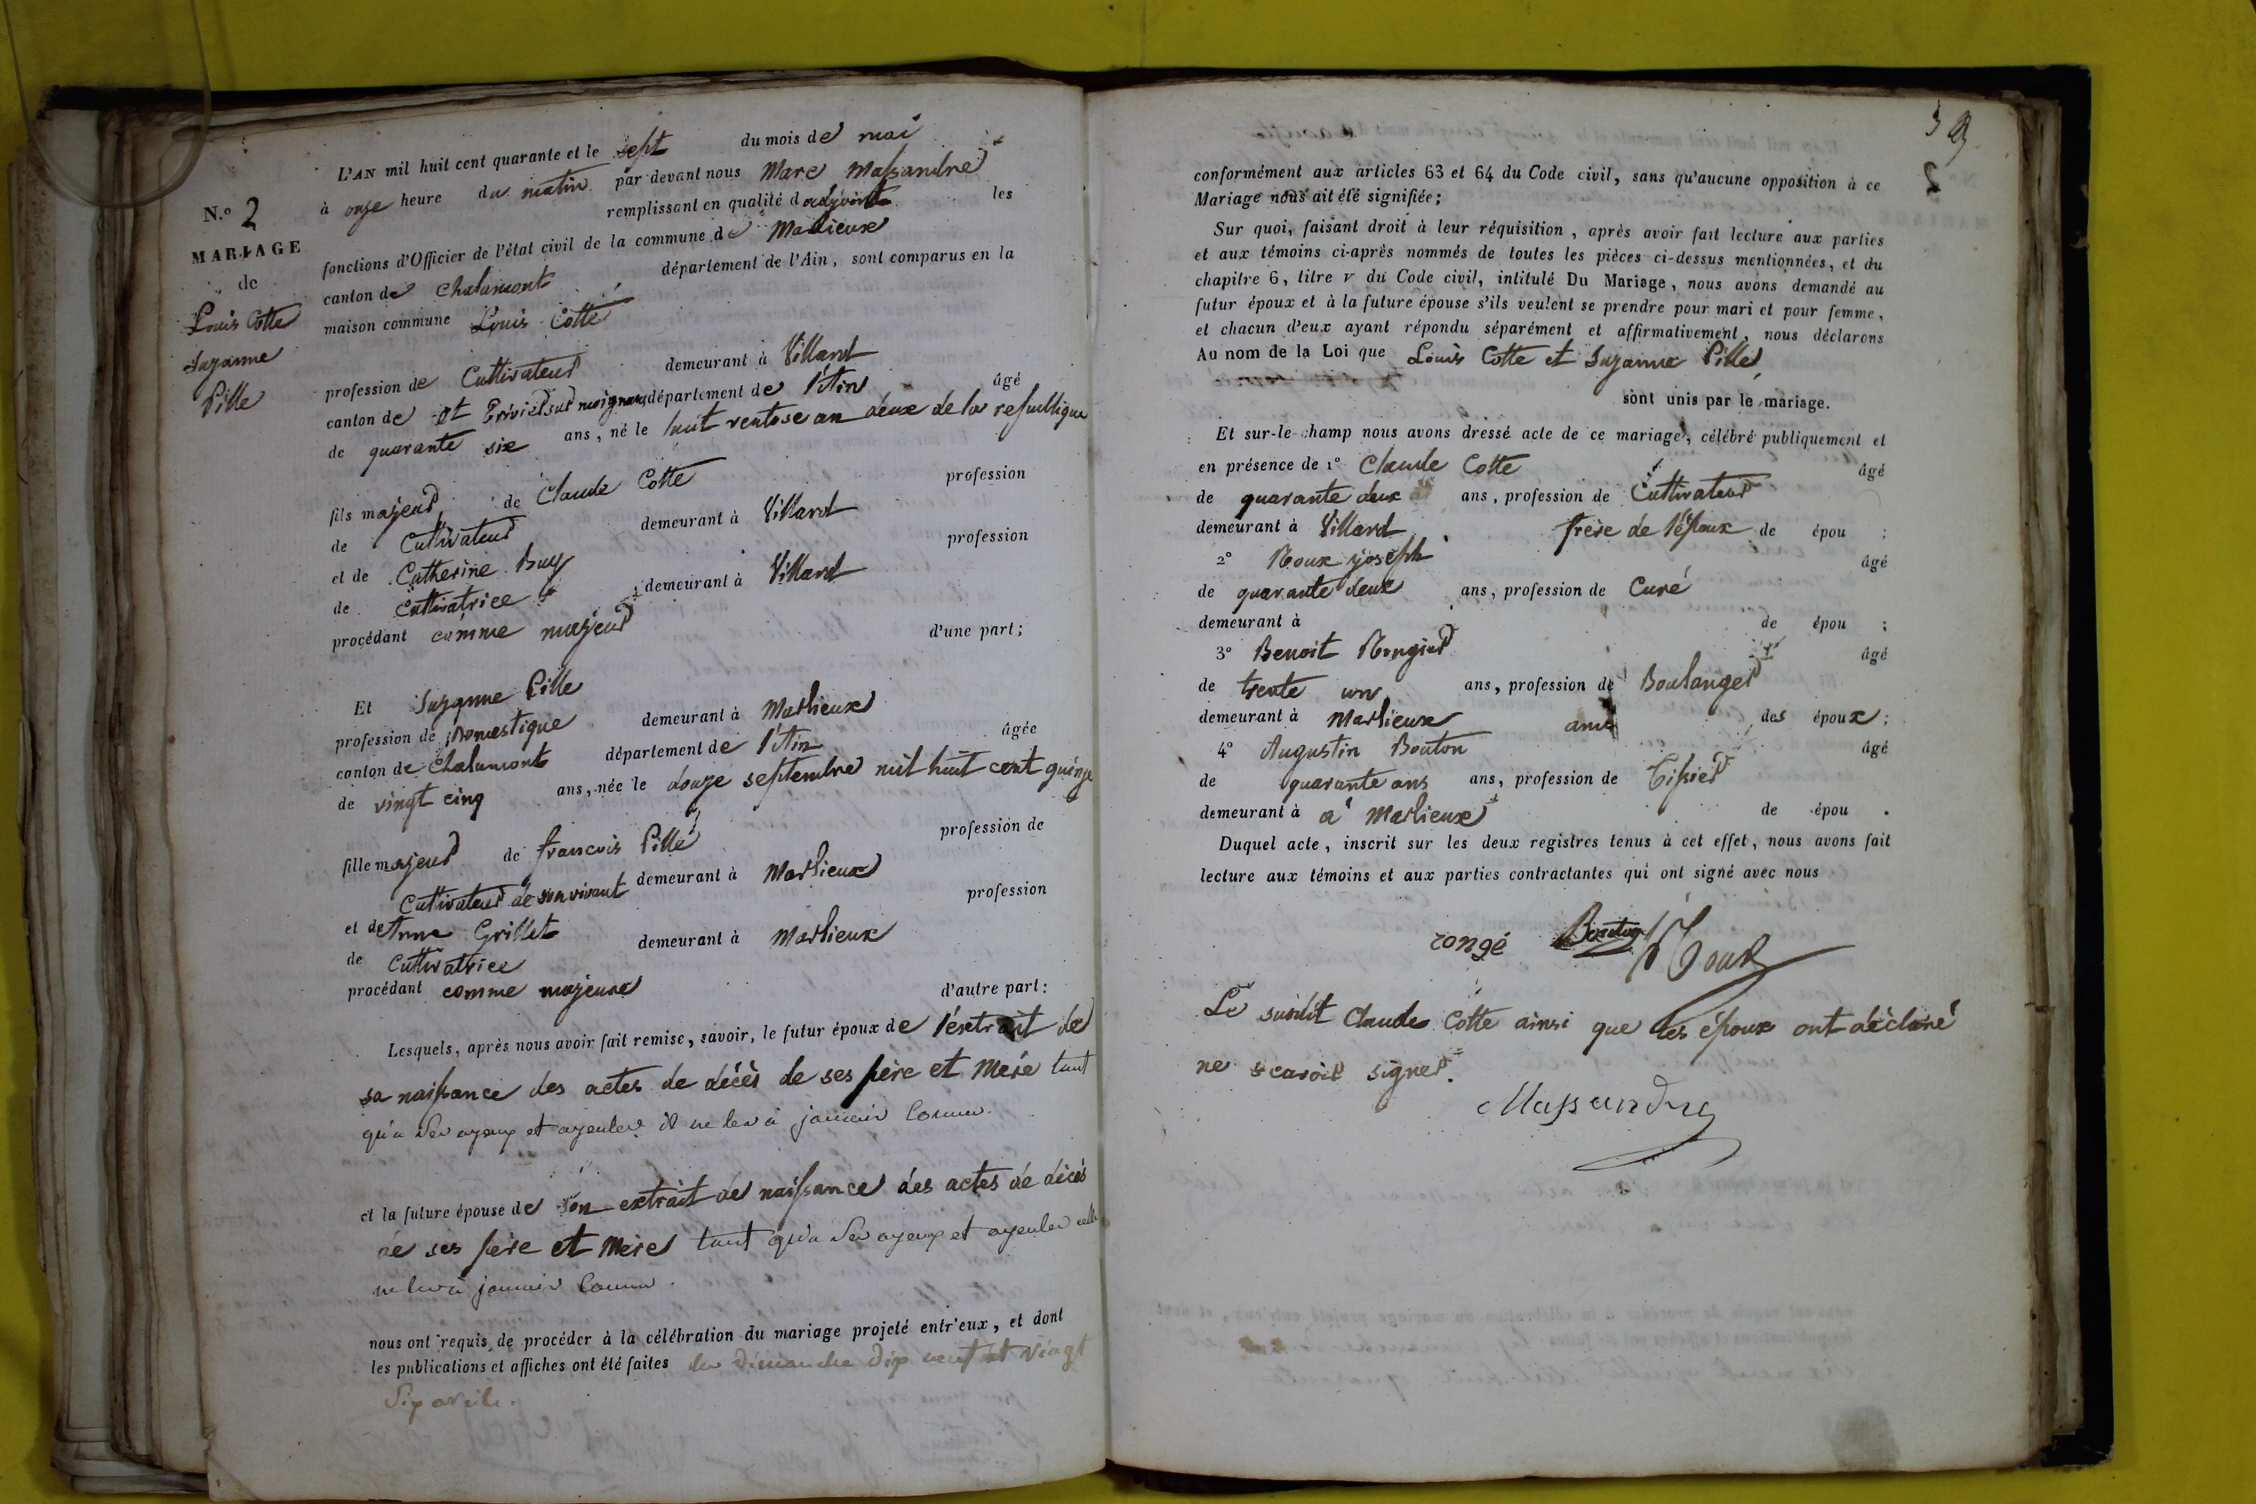 L'AN mil huit cent quarante et le sept du mois de mai
à onze heure du matin par devant nous Marc Massandre
N.º 2
remplissant en qualité d'adjoint les
MARIAGE
fonctions d'Officier de l'état civil de la commune de Marlieux
de
canton de Chalamont département de l'Ain, sont comparus en la
Louis Cotte
maison commune Louis Cotte
Suzanne
profession de Cultivateur demeurant à Villard
Pille
canton de département de l'Ain âgé
de quarante six ans, né le huit ventose an deux de la republique
fils majeur de Claude Cotte profession
de Cultivateur demeurant à Villard
et de Catherine Buy profession
de Cultivatrice demeurant à Villard
procédant comme majeur d'une part;
Et Suzanne Pille
profession de Domestique demeurant à Marlieux
canton de Chalamont département de l'Ain âgée
de vingt cinq ans, née le douze septembre mil huit cent quinze
fille majeur de francois Pille profession de
Cultivateur de son vivant demeurant à Marlieux
et de Anne Grillet profession
de Cultivatrice demeurant à Marlieux
procédant comme majeure d'autre part:
Lesquels, après nous avoir fait remise, savoir, le futur époux de l'extrait de
sa naissance des actes de décès de ses père et Mère tant
qu'a Ses ayeux et ayeules il ne les à jamais Connu.
et la future épouse de son extrait de naissance des actes de décès
de ses père et Mère tant qu'a Ses ayeux et ayeules elle
ne les à jamais Connu.
nous ont requis de procéder à la célébration du mariage projeté entr'eux, et dont
les publications et affiches ont été faites les Dimanche Dix neuf et Vingt
Six avril.
conformément aux articles 63 et 64 du Code civil, sans qu'aucune opposition à ce
Mariage nous ait été signifiée;
Sur quoi, faisant droit à leur réquisition, après avoir fait lecture aux parties
et aux témoins ci-après nommés de toutes les pièces ci-dessus mentionnées, et du
chapitre 6, titre V du Code civil, intitulé Du Mariage, nous avons demandé au
futur époux et à la future épouse s'ils veulent se prendre pour mari et pour femme,
et chacun d'eux ayant répondu séparément et affirmativement, nous déclarons
Au nom de la Loi que Louis Cotte et Suzanne Pille
sont unis par le mariage.
Et sur-le-champ nous avons dressé acte de ce mariage, célébré publiquement et
en présence de 1º Claude Cotte âgé
de quarante deux ans, profession de Cultivateur
demeurant à Villard frère de l'époux de épou ;
2º Roux joseph âgé
de quarante deux ans, profession de Curé
demeurant à de épou ;
3º Benoit Rongier âgé
de trente un ans, profession de Boulanger
demeurant à Marlieux ami des époux ;
4º Augustin Bouton âgé
de quarante ans ans, profession de Tissier
demeurant à a Marlieux de épou .
Duquel acte, inscrit sur les deux registres tenus à cet effet, nous avons fait
lecture aux témoins et aux parties contractantes qui ont signé avec nous
rongé Bouton Roux
Le susdit Claude Cotte ainsi que les époux ont déclaré
ne scavoir signer.
Massandre